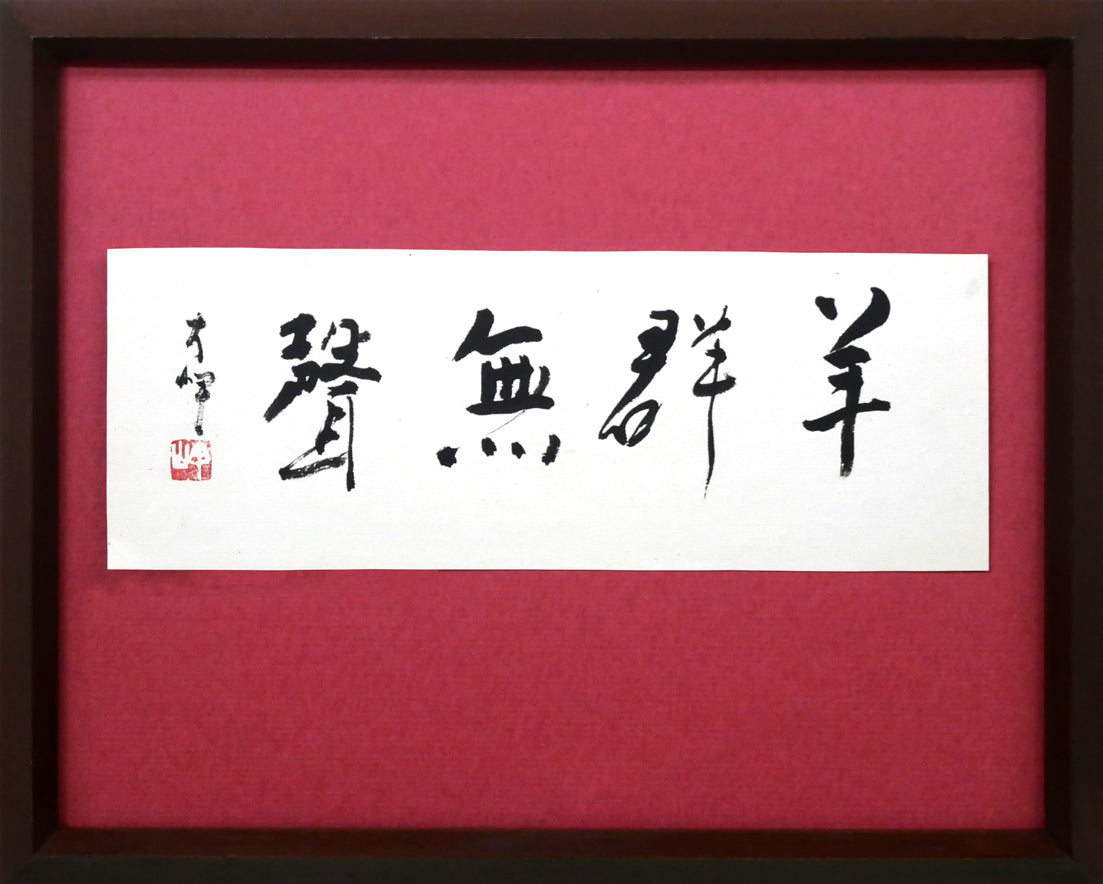 羊群無聲